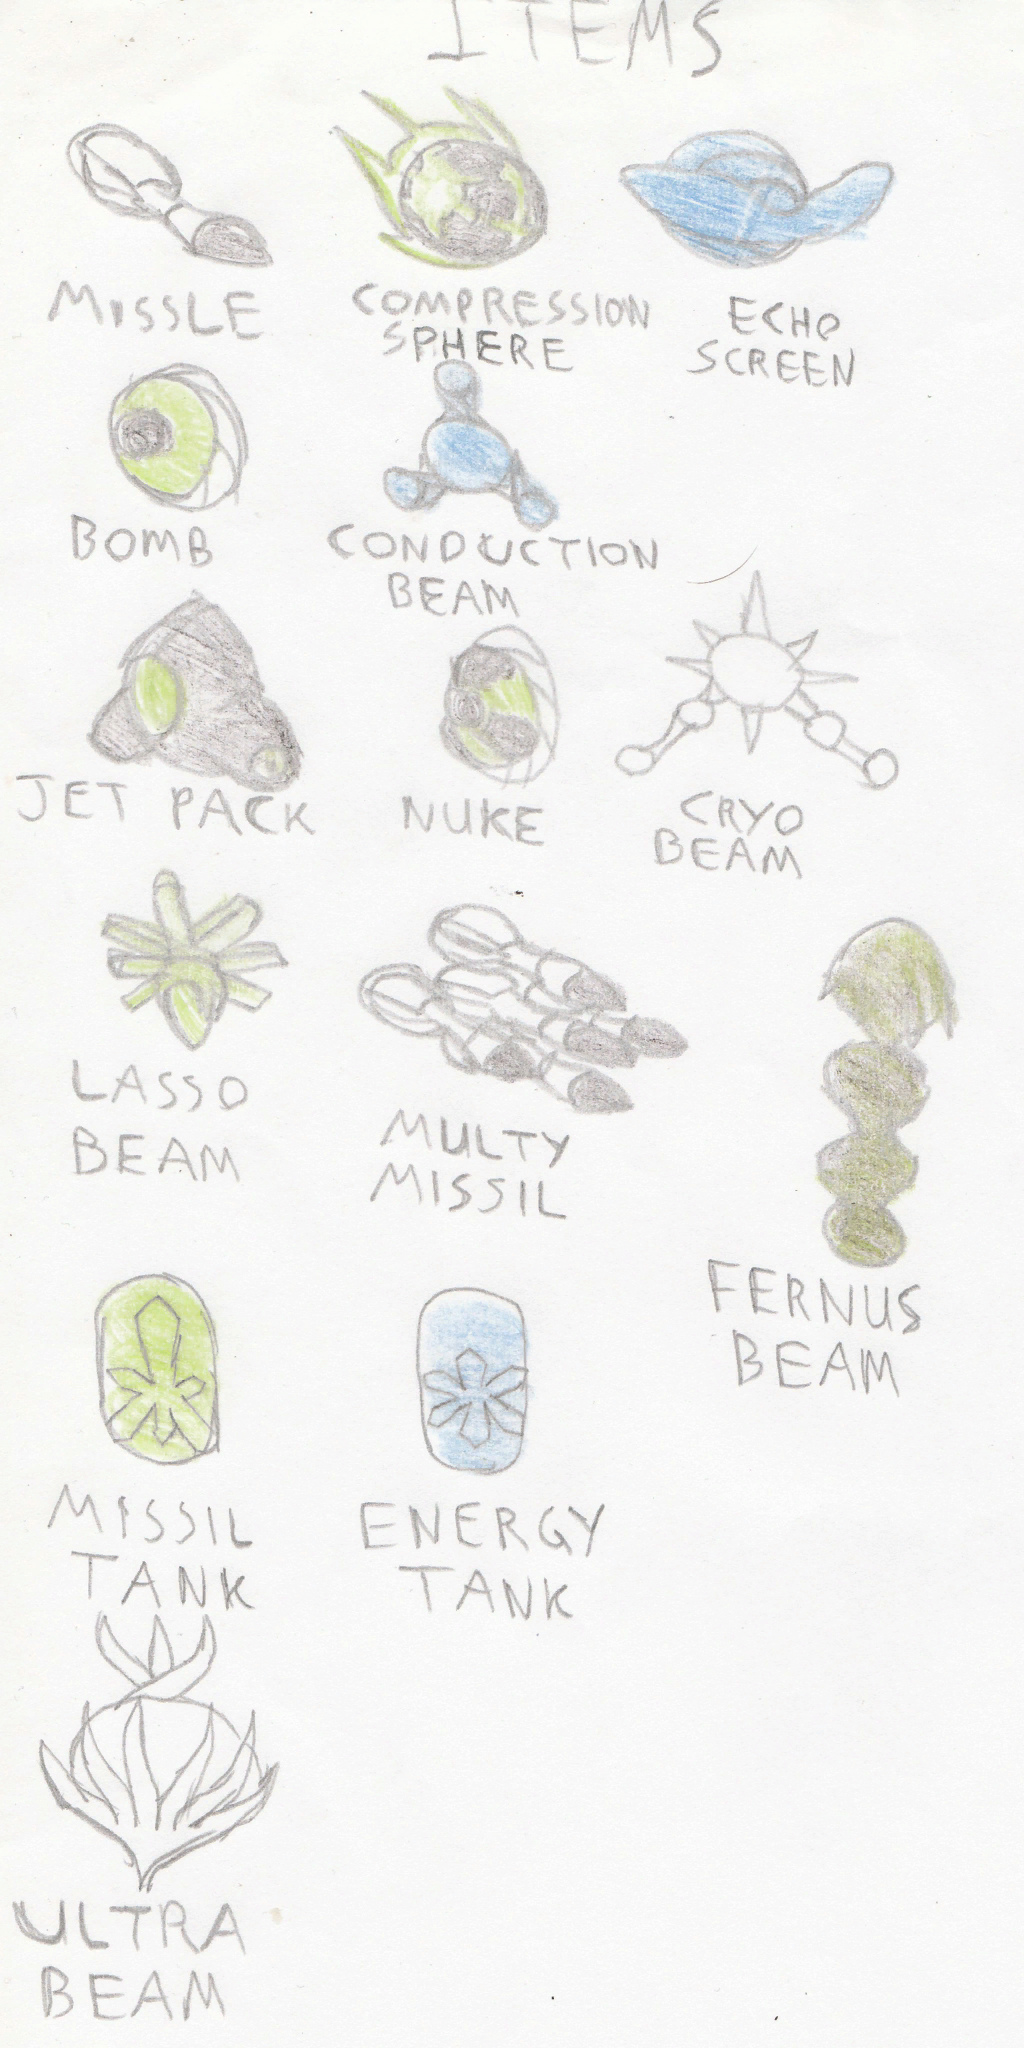 ITEMS
MISSLE
COMPRESSION
SPHERE
ECHO
SCREEN
BOMB
CONDUCTION
BEAM
JET PACK
NUKE
CRYO
BEAM
LASSO
BEAM
MULTY
MISSIL
FERNUS
BEAM
MISSIL
TANK
ENERGY
TANK
ULTRA
BEAM